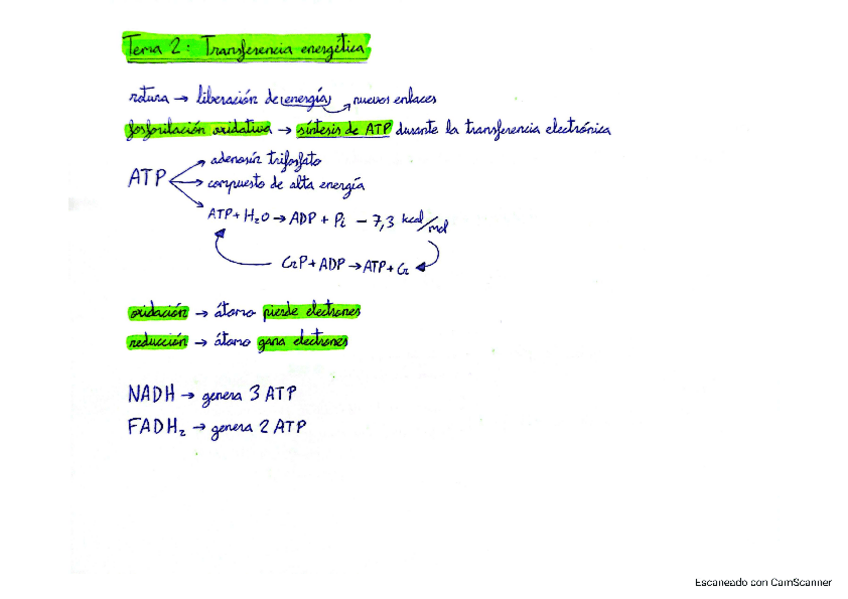 Tema 2: Transferencia energética
rotura → liberación de energía → nuevos enlaces
fosforilación oxidativa → síntesis de ATP durante la transferencia electrónica
ATP
→ adenosín trifosfato
→ compuesto de alta energía
→ ATP + H₂O → ADP + Pi − 7,3 kcal/mol
CrP + ADP → ATP + Cr
oxidación → átomo pierde electrones
reducción → átomo gana electrones
NADH → genera 3 ATP
FADH₂ → genera 2 ATP
Escaneado con CamScanner